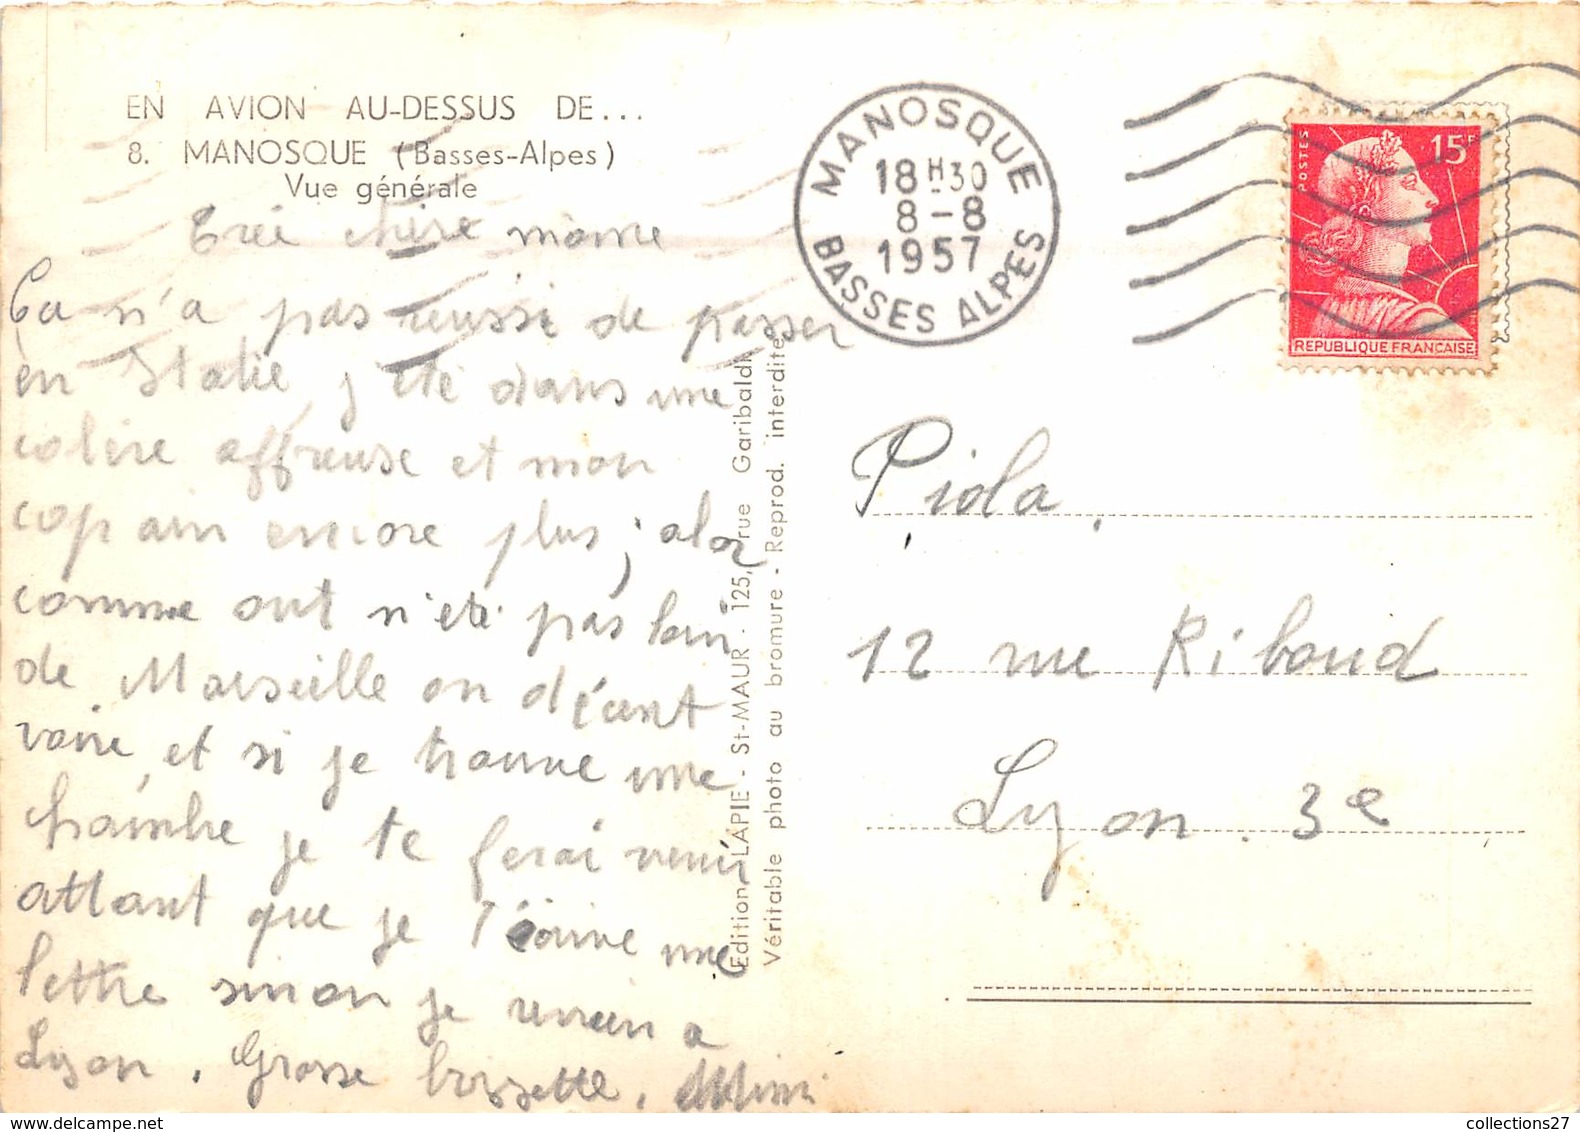 EN AVION AU-DESSUS DE...
8. MANOSQUE (Basses-Alpes)
Vue générale
MANOSQUE
18H30
8-8
1957
BASSES ALPES
POSTES
15F
REPUBLIQUE FRANÇAISE
chère
Ça n'a pas reussi de passer
en Italie, j eté dans une
colère affreuse et mon
copain encore plus; alor
comme ont n'eté pas loin
de Marseille on
voire, et si je trouve une
chambre je te ferai venir
attant que je une
lettre sinon je revien a
Lyon. Grosse bossette. Mimi
Edition LAPIE - St-MAUR - 125, rue Garibaldi
Véritable photo au bromure - Reprod. interdite
Piola.
12 rue Riboud
Lyon. 3e
collections27